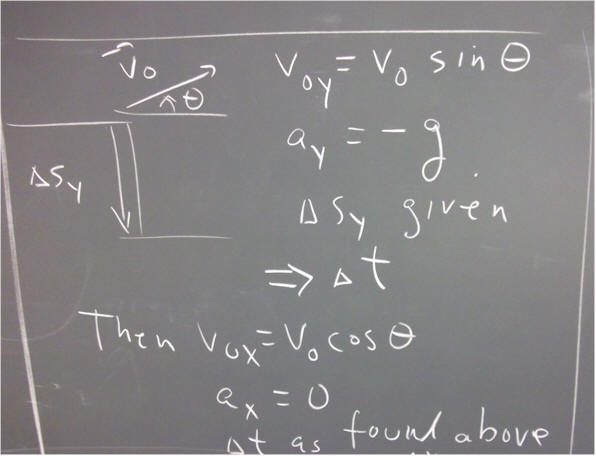 v₀
θ
v₀y = v₀ sin θ
a_y = -g.
Δs_y
Δs_y given
⇒ Δt
Then v₀x = v₀ cos θ
a_x = 0
Δt as found above